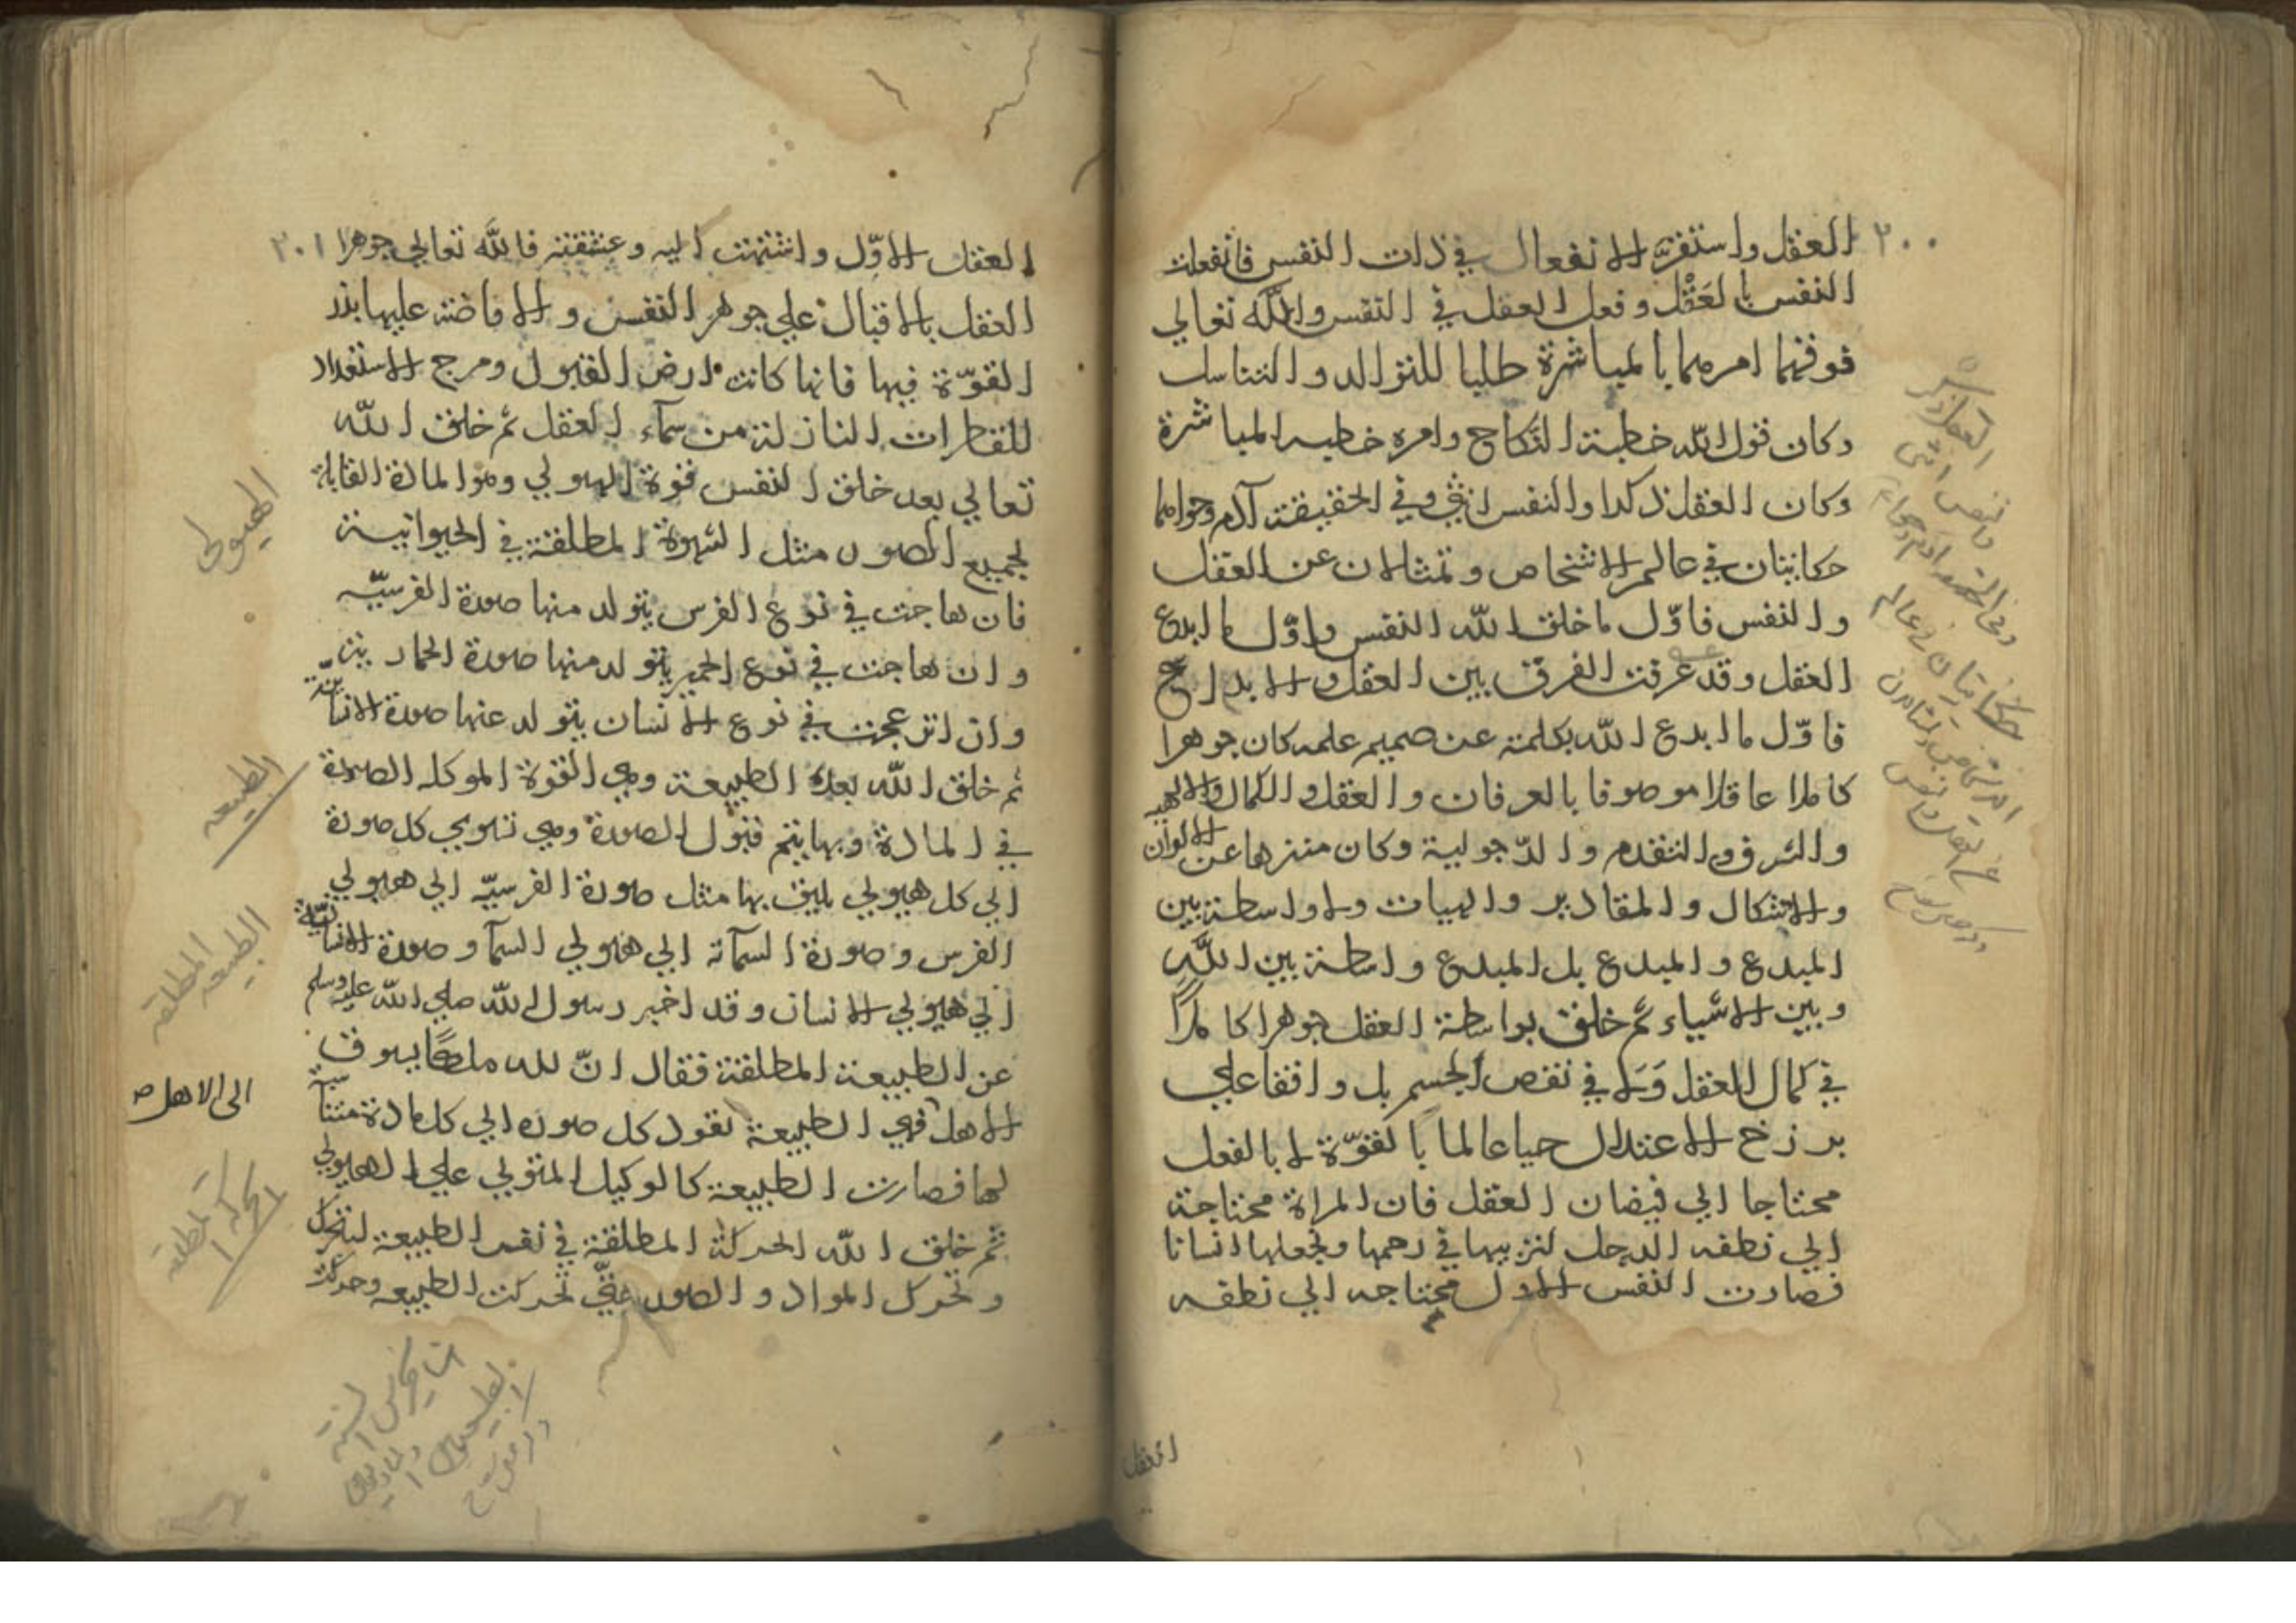 ٢٠٠
العقل واستقر الانفعال في ذات النفس فانفعلت
النفس بالعقل وفعل العقل في النفس والله تعالي
فوقهما امرهما بالمباشرة طلبا للتوالد والتناسل
وكان قول الله خطبة النكاح وامره خطبه المباشرة
وكان العقل ذكرا والنفس انثي وفي الحقيقة آدم وحوا هما
حكايتان في عالم الاشخاص وتمثالان عن العقل
والنفس فاوّل ما خلق الله النفس واوّل ما ابدع
العقل وقد عرفت الفرق بين العقل والابداع
فاوّل ما ابدع الله بكلمته عن صميم علمه كان جوهرا
كاملا عاقلا موصوفا بالعرفان والعقل والكمال والالهيه
والشرف والتقدم والدّجولية وكان منزها عن الالوان
والاشكال والمقادير والهيات ولا واسطة بين
المبدع والمبدع بل المبدع واسطة بين اللّه
وبين الاشياء ثم خلق بواسطة العقل جوهرا كاملاً
في كمال العقل وَلا في نقص الجسم بل واقفا علي
برزخ الاعتدال حيا عالما بالقوّة لا بالفعل
محتاجا الي فيضان العقل فان المراة محتاجة
الي نطفه الرجل لتربيها في رحمها وتجعلها انسانا
فصارت النفس الاول محتاجه الي نطفه
العقل
العقل ذكر
والنفس انثى
وفي الحقيقه ادم وحوا
حكايتان في عالم
الاشخاص وتمثالان
عن العقل والنفس
٢٠١
العقل الاوّل واشتهت اليه وعشقته فالله تعالي جوهرا
العقل بالاقبال علي جوهر النفس والافاضة عليها بذر
القوّة فيها فانها كانت ارض القبول ومرج الاستعداد
للقطرات النازلة من سمآء العقل ثم خلق الله
تعالي بعد خلق النفس قوة الهيولي وهو المادة القابلة
لجميع الصور مثل الشهوة المطلقة في الحيوانية
فان هاجت في نوع الفرس يتولد منها صورة الفرسيّه
وان هاجت في نوع الحمير يتولد منها صورة الحمارية
وان انزعجت في نوع الانسان يتولد عنها صورة الانسانيّة
ثم خلق الله بعده الطبيعة وهي القوة الموكله الصورة
في المادة وبها يتم قبول الصورة وهي تهوي كل صورة
الي كل هيولي يليق بها مثل صورة الفرسيّه الي هيولي
الفرس وصورة السمآئه الي هيولي السمآ وصورة الانسانيّة
الي هيولي الانسان وقد اخبر رسول الله صلي الله عليه وسلم
عن الطبيعة المطلقة فقال انّ لله ملكا يسوق
الاهل فهي الطبيعة تقود كل صوره الي كل مادة متناسبة
لها فصارت الطبيعة كالوكيل المتولي علي الهيولي
ثم خلق الله الحركة المطلقة في نفس الطبيعة لتتحرك
وتحرك المواد والصور تحركت الطبيعه وحركت
الهيولى
الطبيعه
الطبيعه المطلقه
الى الاهل ص
الحركة المطلقه